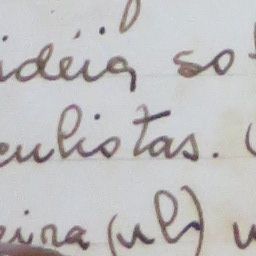 idéia so
culistas. (
eira (nh)